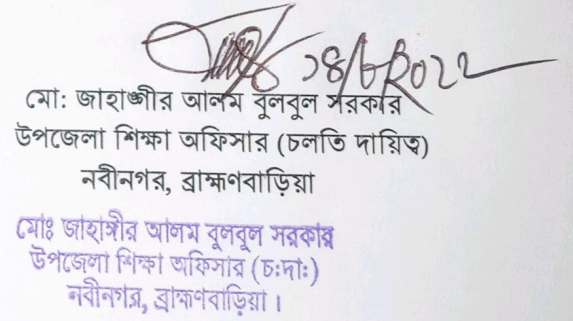 ১৪/৮/২০২২
মো: জাহাঙ্গীর আলম বুলবুল সরকার
উপজেলা শিক্ষা অফিসার (চলতি দায়িত্ব)
নবীনগর, ব্রাহ্মণবাড়িয়া
মোঃ জাহাঙ্গীর আলম বুলবুল সরকার
উপজেলা শিক্ষা অফিসার (চ:দা:)
নবীনগর, ব্রাহ্মণবাড়িয়া।